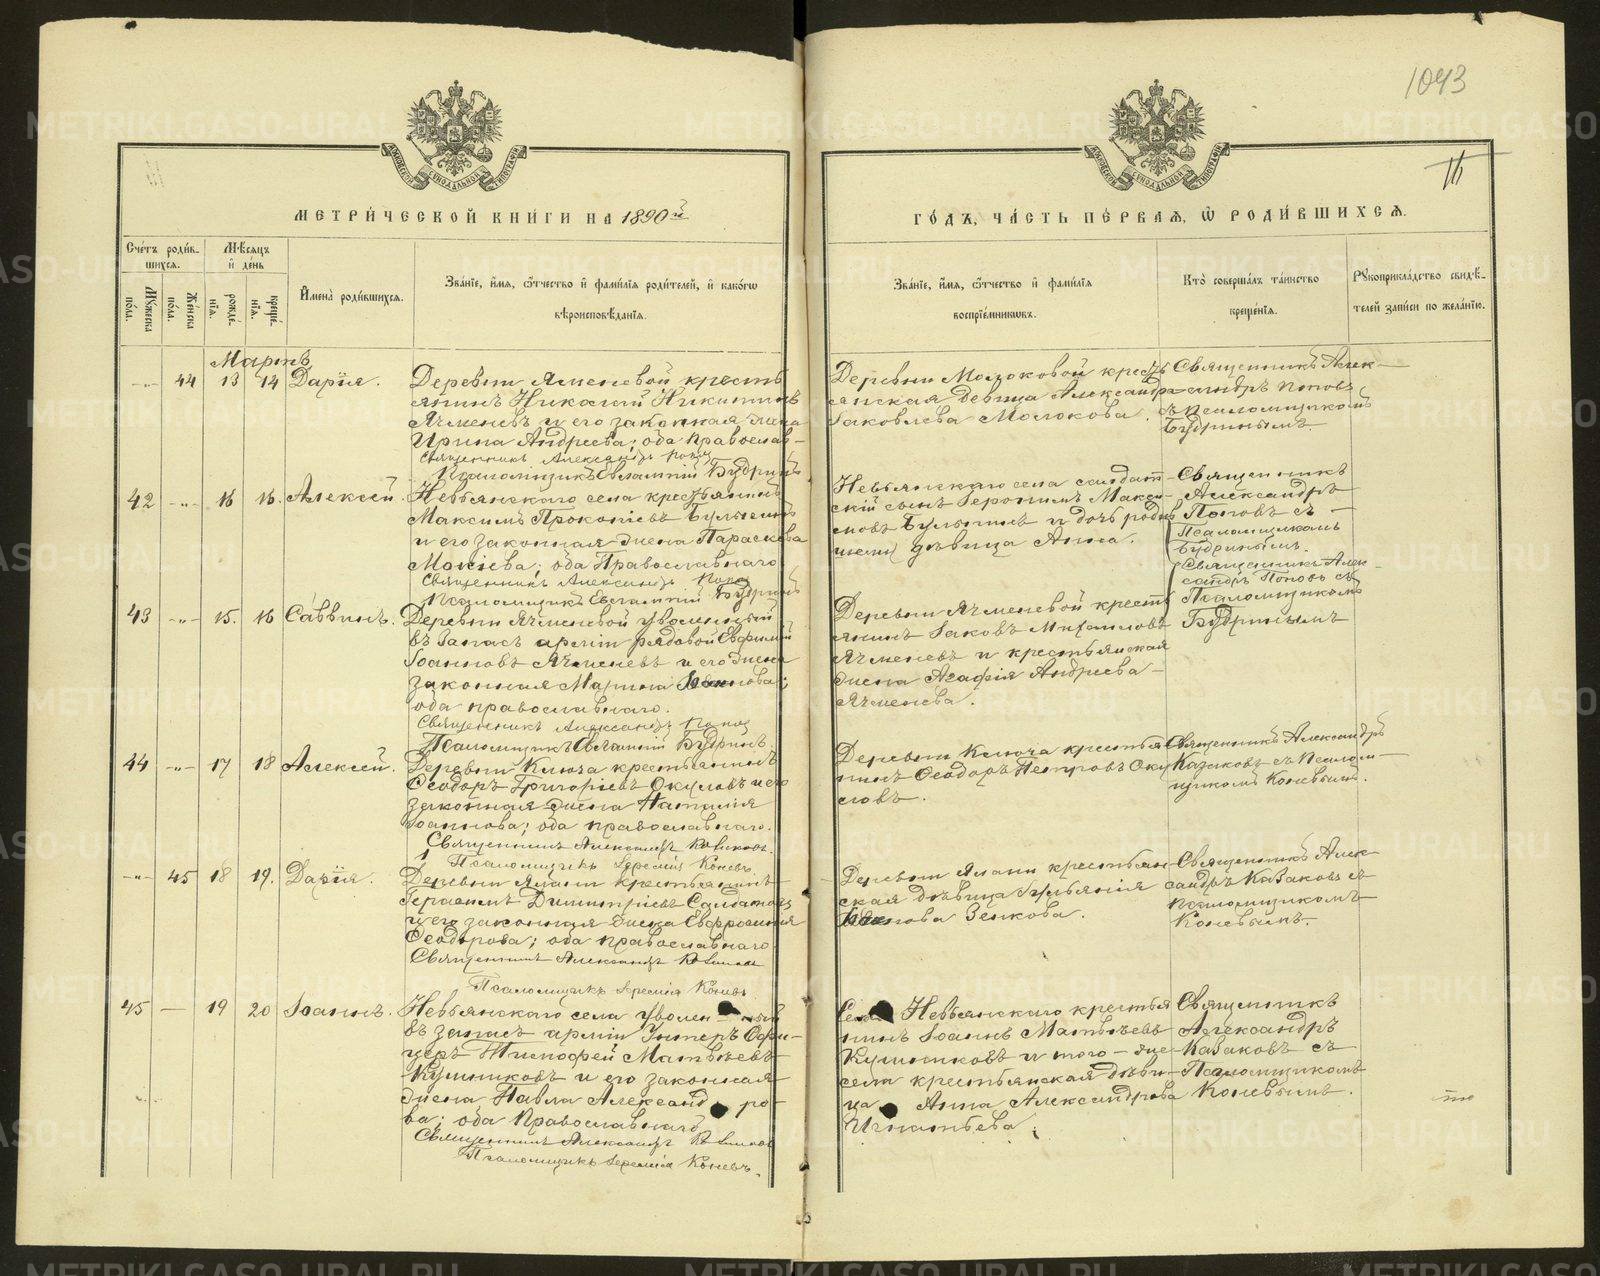 1043
МОСКОВСКОЙ СѴНОДАЛЬНОЙ ТИПОГРАФІИ
МОСКОВСКОЙ СѴНОДАЛЬНОЙ ТИПОГРАФІИ
МЕТРИ́ЧЕСКОЙ КНИ́ГИ НА 1890й
ГО́ДЪ, ЧА́СТЬ ПЕ́РВАЯ, Ѡ РОДИ́ВШИХСЯ.
Сче́тъ роди́в-
шихся.
Мꙋ́жеска по́ла.
Же́нска по́ла.
Мѣ́сяцъ
и҆ де́нь
рожде́-
нїя.
креще́-
нїя.
И҆мена̀ роди́вшихся.
Зва́нїе, и҆́мя, ѻ҆́тчество и҆ фами́лїя роди́телей, и҆ како́гѡ
вѣроисповѣ́данїя.
Зва́нїе, и҆́мя, ѻ҆́тчество и҆ фами́лїя
воспрїе́мникѡвъ.
Кто̀ соверша́лъ та́инство
креще́нїя.
Рꙋкоприкла́дство свидѣ́-
телей за́писи по жела́нїю.
Мартъ
44 13 14 Дарія.
Деревни Ячменевой кресть
янинъ Николай Никитинъ
Ячменевъ и его законная жена
Ирина Андреева; оба православ-
Священникъ Александръ Попов
Псаломщикъ Евлампій Будринъ
Деревни Молоковой кресть
янская девица Александра
Іаковлева Молокова.
Священникъ Алек-
сандръ Поповъ
съ псаломщикомъ
Будринымъ
42 16 16. Алексій.
Невьянскаго села крестьянинъ
Максимъ Прокопіевъ Булыгинъ
и его законная жена Параскева
Мокіева; оба Православнаго
Священникъ Александръ Попов
Псаломщикъ Евлампій Будринъ
Невьянскаго села солдат-
скій сынъ Іеронимъ Макси-
мовъ Булыгинъ и дочь
девица Анна.
Священникъ
Александръ
Поповъ съ
Псаломщикомъ
Будринымъ.
43 15. 16 Саввинъ.
Деревни Ячменевой уволенный
въ Запасъ арміи рядовой Евфимій
Іоанновъ Ячменевъ и его жена
законная Марина Іоаннова;
оба православнаго.
Священникъ Александръ Попов
Псаломщикъ Евлампій Будринъ
Деревни Ячменевой кресть
янинъ Іаковъ Михаиловъ
Ячменевъ и крестьянская
жена Агафія Андреева
Ячменева.
Священникъ Алек-
сандръ Поповъ съ
Псаломщикомъ
Будринымъ
44 17 18 Алексій.
Деревни Ключа крестьянинъ
Ѳеодоръ Григоріевъ Окуловъ и его
законная жена Наталія
Іоаннова; оба православнаго.
Священникъ Александръ Казаковъ.
Псаломщикъ Іеремія Коневъ.
Деревни Ключа крестья
нинъ Ѳеодоръ Петровъ Оку
ловъ.
Священникъ Александръ
Казаковъ съ Псалом-
щикомъ Коневымъ.
45 18 19. Дарія.
Деревни Ялани крестьянинъ
Герасимъ Димитріевъ Солдатовъ
и его законная жена Евфросинія
Ѳеодорова; оба православнаго
Священникъ Александръ Казаковъ
Псаломщикъ Іеремія Коневъ
Деревни Ялани крестьян
ская девица Іуліанія
Іоаннова Зенкова.
Священникъ Алек
сандръ Казаковъ съ
псаломщикомъ
Коневымъ.
45 19 20 Іоаннъ.
Невьянскаго села уволенный
въ запасъ арміи Унтеръ Офи-
церъ Тимофей Матвѣевъ
Кушниковъ и его законная
жена Павла Александро-
ва; оба Православнаго
Священникъ Александръ Казаков
Псаломщикъ Іеремія Коневъ.
Села Невьянскаго крестья
нинъ Іоаннъ Матвѣевъ
Кушниковъ и того-же
села крестьянская дѣви-
ца Анна Александрова
Игнатьева.
Священникъ
Александръ
Казаковъ съ
Псаломщикомъ
Коневымъ.
METRIKI.GASO-URAL.RU